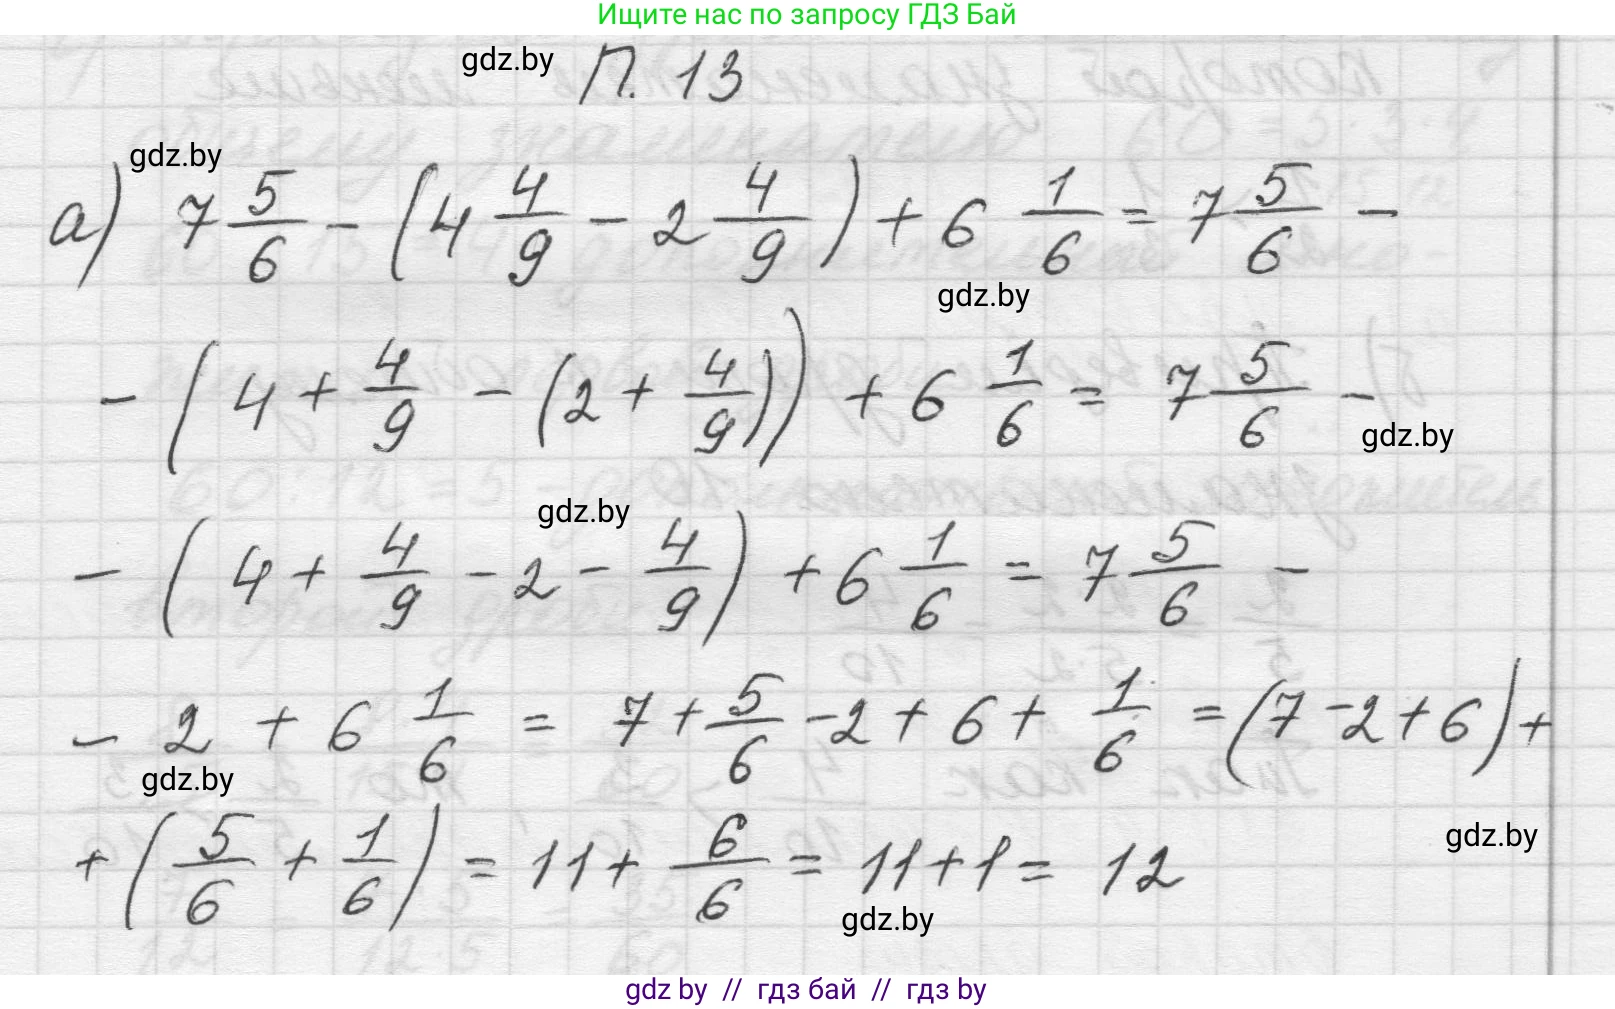 Ищите нас по запросу ГДЗ Бай
gdz.by П. 13
gdz.by
а) 7 5/6 - (4 4/9 - 2 4/9) + 6 1/6 = 7 5/6 -
gdz.by
- (4 + 4/9 - (2 + 4/9)) + 6 1/6 = 7 5/6 -
gdz.by
gdz.by
- (4 + 4/9 - 2 - 4/9) + 6 1/6 = 7 5/6 -
- 2 + 6 1/6 = 7 + 5/6 - 2 + 6 + 1/6 = (7 - 2 + 6) +
gdz.by
+ (5/6 + 1/6) = 11 + 6/6 = 11 + 1 = 12
gdz.by
gdz.by
gdz by // гдз бай // гдз by